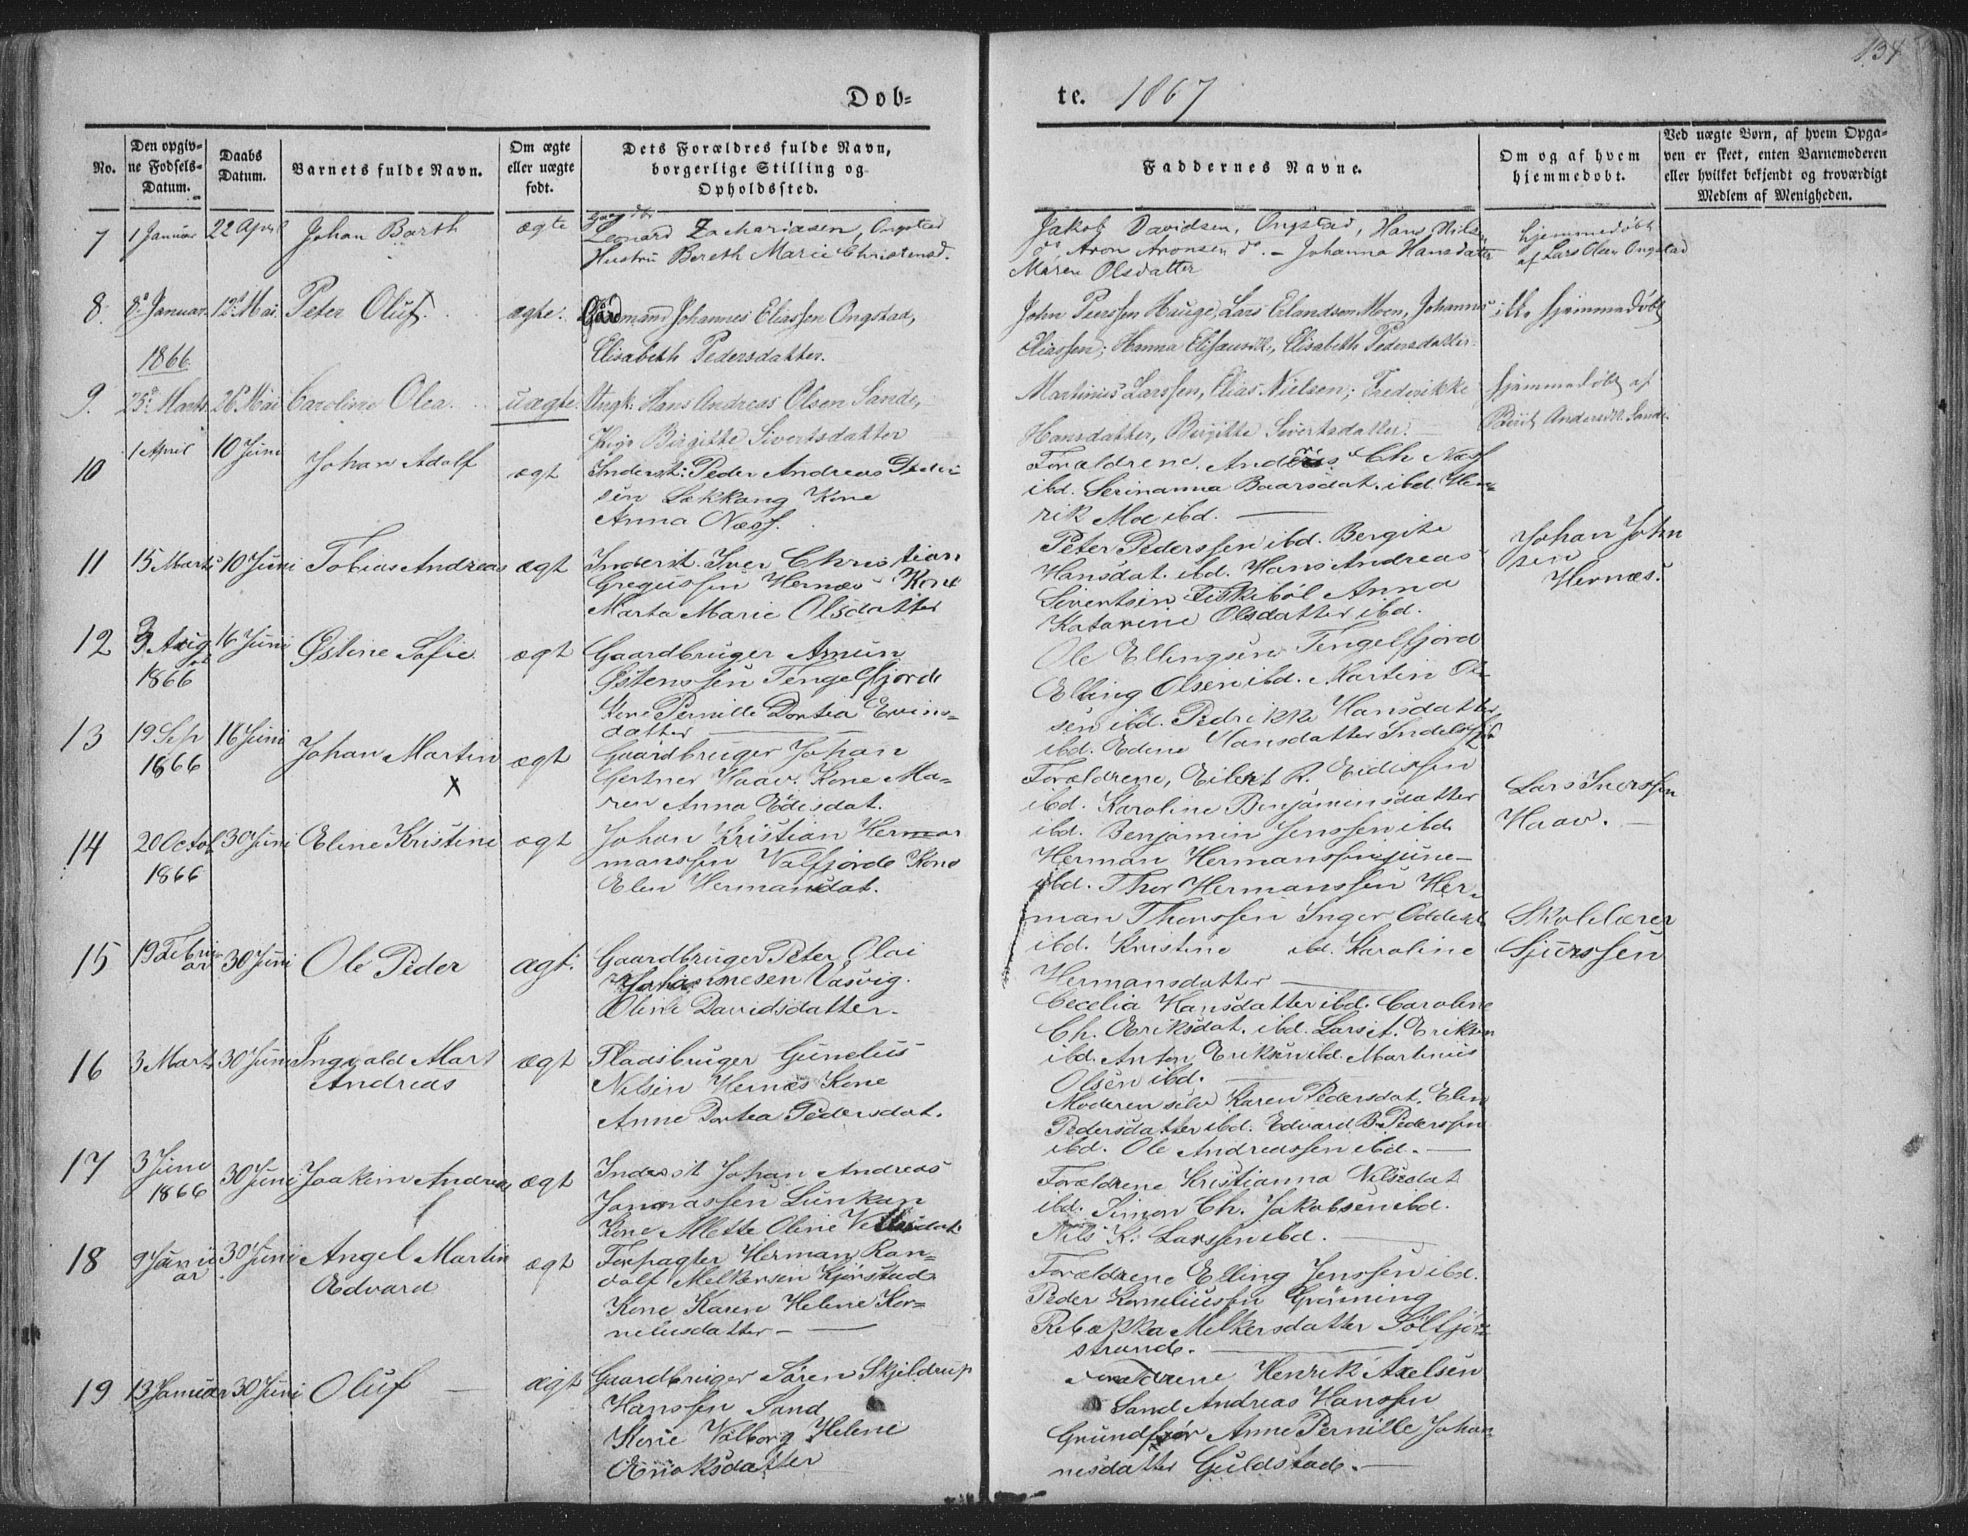 134
Døb-
te. 1867
No.
Den opgiv-
ne Fødsels-
Datum.
Daabs
Datum.
Barnets fulde Navn.
Om ægte
eller uægte
født.
Dets Forældres fulde Navn,
borgerlige Stilling og
Opholdssted.
Faddernes Navne.
Om og af hvem
hjemmedøbt.
Ved uægte Børn, af hvem Opga-
ven er skeet, enten Barnemoderen
eller hvilket bekjendt og troværdigt
Medlem af Menigheden.
7 1 Januar 22 April Johan Barth ægte
Leonard Zachariasen, Ongstad
Hustru Bereth Marie Christensd.
Jakob Davidsen, Ongstad, Hans Nils
Aron Aronsen do. - Johanna Hansdatter
Maren Olsdatter
hjemmedøbt
af Lars Olsen Ongstad
8. 8de Januar 12te Mai Peter Oluf. ægte.
1866
Gaardmand Johannes Eliassen Ongstad,
Elisabeth Pedersdatter.
John Peerssen Hauge, Lars Erlandsen Moen, Johannes
Eliassen; Hanna Elisæusd., Elisabeth Pedersdatter
ikke hjemmedøbt
9. 25de Marts 26de Mai Caroline Olea. uægte.
Ungk. Hans Andreas Olsen Sande,
Pige Birgitte Sivertsdatter
Martinus Larssen, Elias Nielsen; Frederikke
Hansdatter, Birgitte Sivertsdatter.
hjemmedøbt af
Berit Andersd. Sande
10 1 April 10 Juni Johan Adolf ægt
Inderst: Peder Andreas Peder-
sen Løkkang Kone
Anna Næss.
Forældrene. Anders Ch Næss
ibd. Serinanna Baarsdat. ibd Hen-
rik Moe ibd.
11 15 Marts 10 Juni Tobias Andreas ægt
Inderst. Iver Christian
Gregussen Hernæs Kone
Marta Marie Olsdatter
Peter Pederssen ibd. Bergite
Hansdat. ibd. Hans Andreas
Sivertsen Fiskebøl Anna
Katarine Olsdatter ibd.
Johan John
sen
Hernæs.
12 3 Aug 16 Juni Østene Sofie ægt
1866
Gaardbruger Amun
Østenssen Tengelfjord
Kone Pernille Dortea Evins-
datter
Ole Ellingsen Tengelfjord
Elling Olsen ibd. Martin Ol-
sen ibd. Pedrikke Hansdatter
ibd. Edine Hansdatter
13 19 Sep 16 Juni Johan Martin ægt
1866
x
Gaardbruger Johan
Gertner Haav. Kone Ma-
ren Anna Edisdat.
Forældrene, Eilert R. Eidissen
ibd. Karoline Benjaminsdatter
ibd. Benjamin Jenssen ibd.
Lars Iverssen
Haav.
14 20 Octob 30 Juni Eline Kristine ægt
1866
Johan Kristian Her
manssen Valfjorde Kone
Elen Hermansdat.
Herman Hermanssen june-
ibd. Thor Hermanssen Her-
man Thorssen Inger Oddead
ibd. Kristine ibd. Karoline
Hermansdatter
Skolelærer
Sjurssen
15 19 Febru- 30 Juni Ole Peder ægt.
ar
Gaardbruger Peter Olai
Johannesen Vasvig.
Oline Davidsdatter.
Cecelia Hansdatter ibd. Caroline
Ch. Eriksdat. ibd. Lars A. Eriksen
ibd. Anton Eriksen ibd. Martinus
Olsen ibd.
16 3 Marts 30 Juni Ingvald Mart ægt
Andreas
Pladsbruger Gunelius
Nilsen Hernæs Kone
Anne Dortea Pedersdat.
Moderen selv Karen Pedersdat. Elen
Pedersdatter ibd. Edvard B. Pederssen
ibd. Ole Andreassen ibd.
17 3 Juni 30 Juni Joakim Andrea ægt
1866
Inderst Johan Andreas
Jonassen Lunkan
Kone Mette Oline
Forældrene Kristianna Nilsdat
ibd. Simon Ch. Jakobsen ibd.
Nils K. Larssen ibd.
18 9 Janu- 30 Juni Angel Martin ægt
ar
Edvard
Forpagter Herman Ran-
dolf Melkersen Kjørstad
Kone Karen Helene Kor-
neliusdatter
Forældrene Elling Jenssen ibd.
Peder Korneliussen Grønning
Rebækka Melkersdatter
strand.
19 13 Januar 30 Juni Oluf ægt
Gaardbruger Søren Skjeldrup
Hanssen Sand
Kone Valborg Helene
Eriksdatter
Forældrene Henrik Axelsen
Sand Andreas Hanssen
Grundfør Anne Pernille Johan-
nesdatter Guldstad.